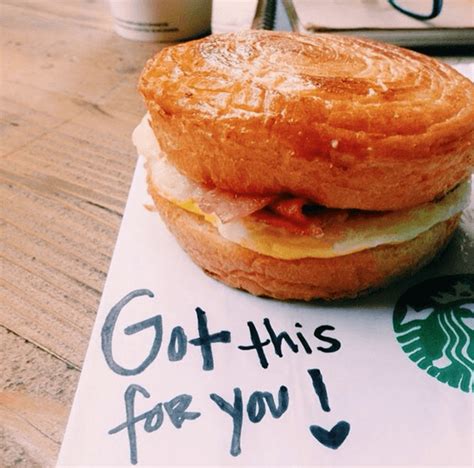 Got this
for you!